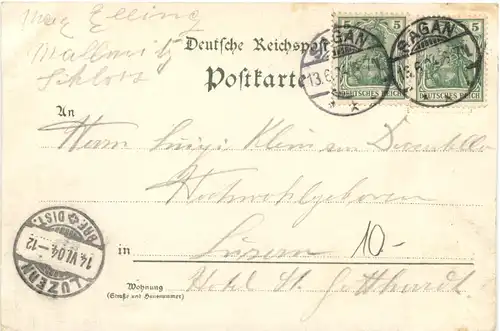 Max Elling
Mallmitz
Schloss
Deutsche Reichspost
Postkarte
5 5
DEUTSCHES REICH
5 5
DEUTSCHES REICH
SAGAN
13.6.04
SAGAN
An
Herrn Luigi Klein
Hochwohlgeboren
in Luzern 10-
Hotel St. Gotthardt
Wohnung
(Straße und Hausnummer)
LUZERN
14.VI.04-12
BRF. DIST.